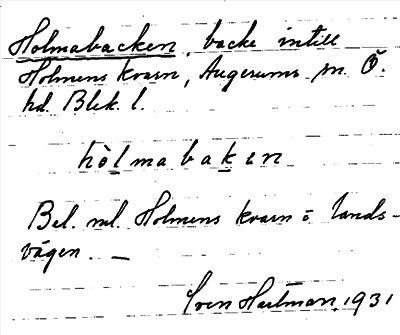 Holmabacken, backe intill
Holmens kvarn, Augerums sn. Ö.
hd. Blek. l.
hòlmabakən
Bel. ml. Holmens kvarn o. lands-
vägen. —
Sven Hartman. 1931